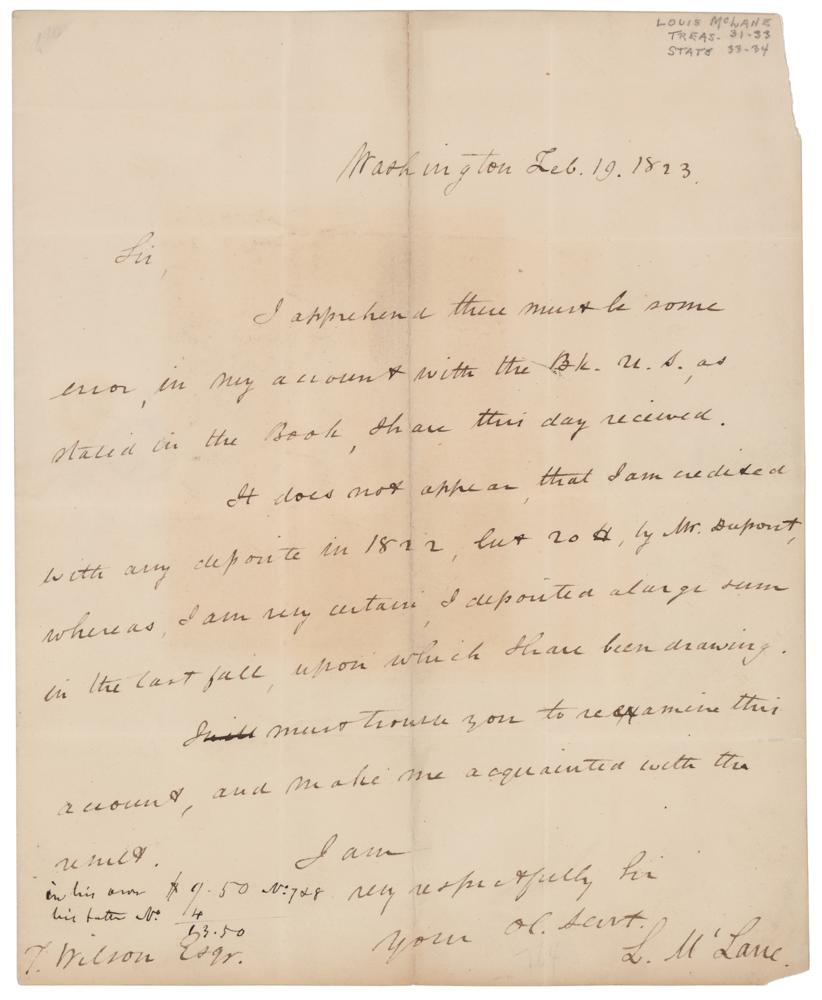 LOUIS McLANE
TREAS. 31-33
STATE 33-34
Washington Feb. 19. 1823.
Sir,
I apprehend there must be some
error, in my account with the Bk. U. S., as
stated in the Book, I have this day received.
It does not appear, that I am credited
with any deposite in 1822, but 20 , by Mr. Dupont,
whereas, I am very certain, I deposited a large sum
in the last fall, upon which I have been drawing.
I will must trouble you to reexamine this
account, and make me acquainted with the
result.
I am
very respectfully Sir
your ob. servt.
L. McLane.
in his own $ 9.50 No. 748
his letter No. 4
13.50
T. Wilson Esqr.